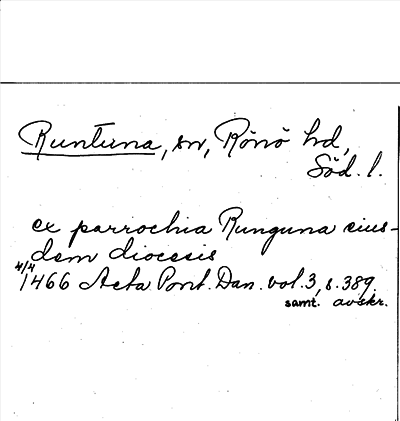 Runtuna, sn, Rönö hd,
Söd. l.
ex parrochia Runguna eius-
dem diocesis
4/4
1466 Acta Pont. Dan. vol. 3, s. 389.
samt. avskr.